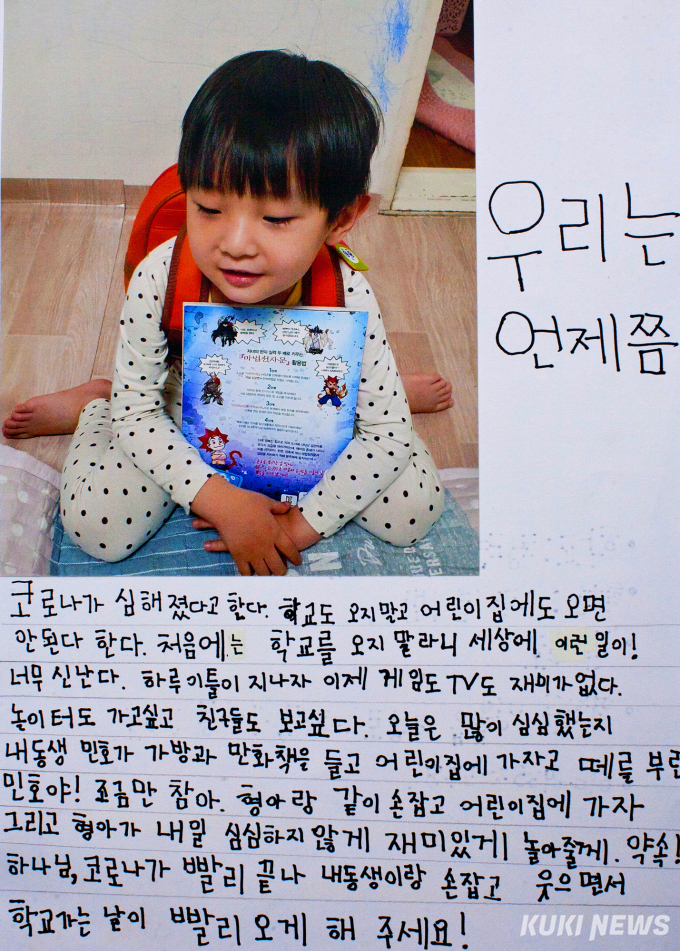 우리는
언제쯤
자녀의 한자 실력 두 배로 키우는
『마법천자문』 활용법
1단계
2단계
3단계
4단계
코로나가 심해졌다고 한다. 학교도 오지말고 어린이집에도 오면
안된다 한다. 처음에는 학교를 오지 말라니 세상에 이런일이!
너무 신난다. 하루 이틀이 지나자 이제 게임도 TV도 재미가없다.
놀이터도 가고싶고 친구들도 보고싶다. 오늘은 많이 심심했는지
내동생 민호가 가방과 만화책을 들고 어린이집에 가자고 떼를 부린
민호야! 조금만 참아. 형아랑 같이 손잡고 어린이집에 가자
그리고 형아가 내일 심심하지 않게 재미있게 놀아줄게. 약속!
하나님, 코로나가 빨리 끝나 내동생이랑 손잡고 웃으면서
학교가는 날이 빨리 오게 해 주세요!
KUKI NEWS